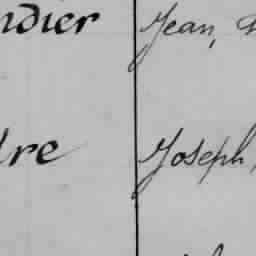 ndier Jean,
dre Joseph,